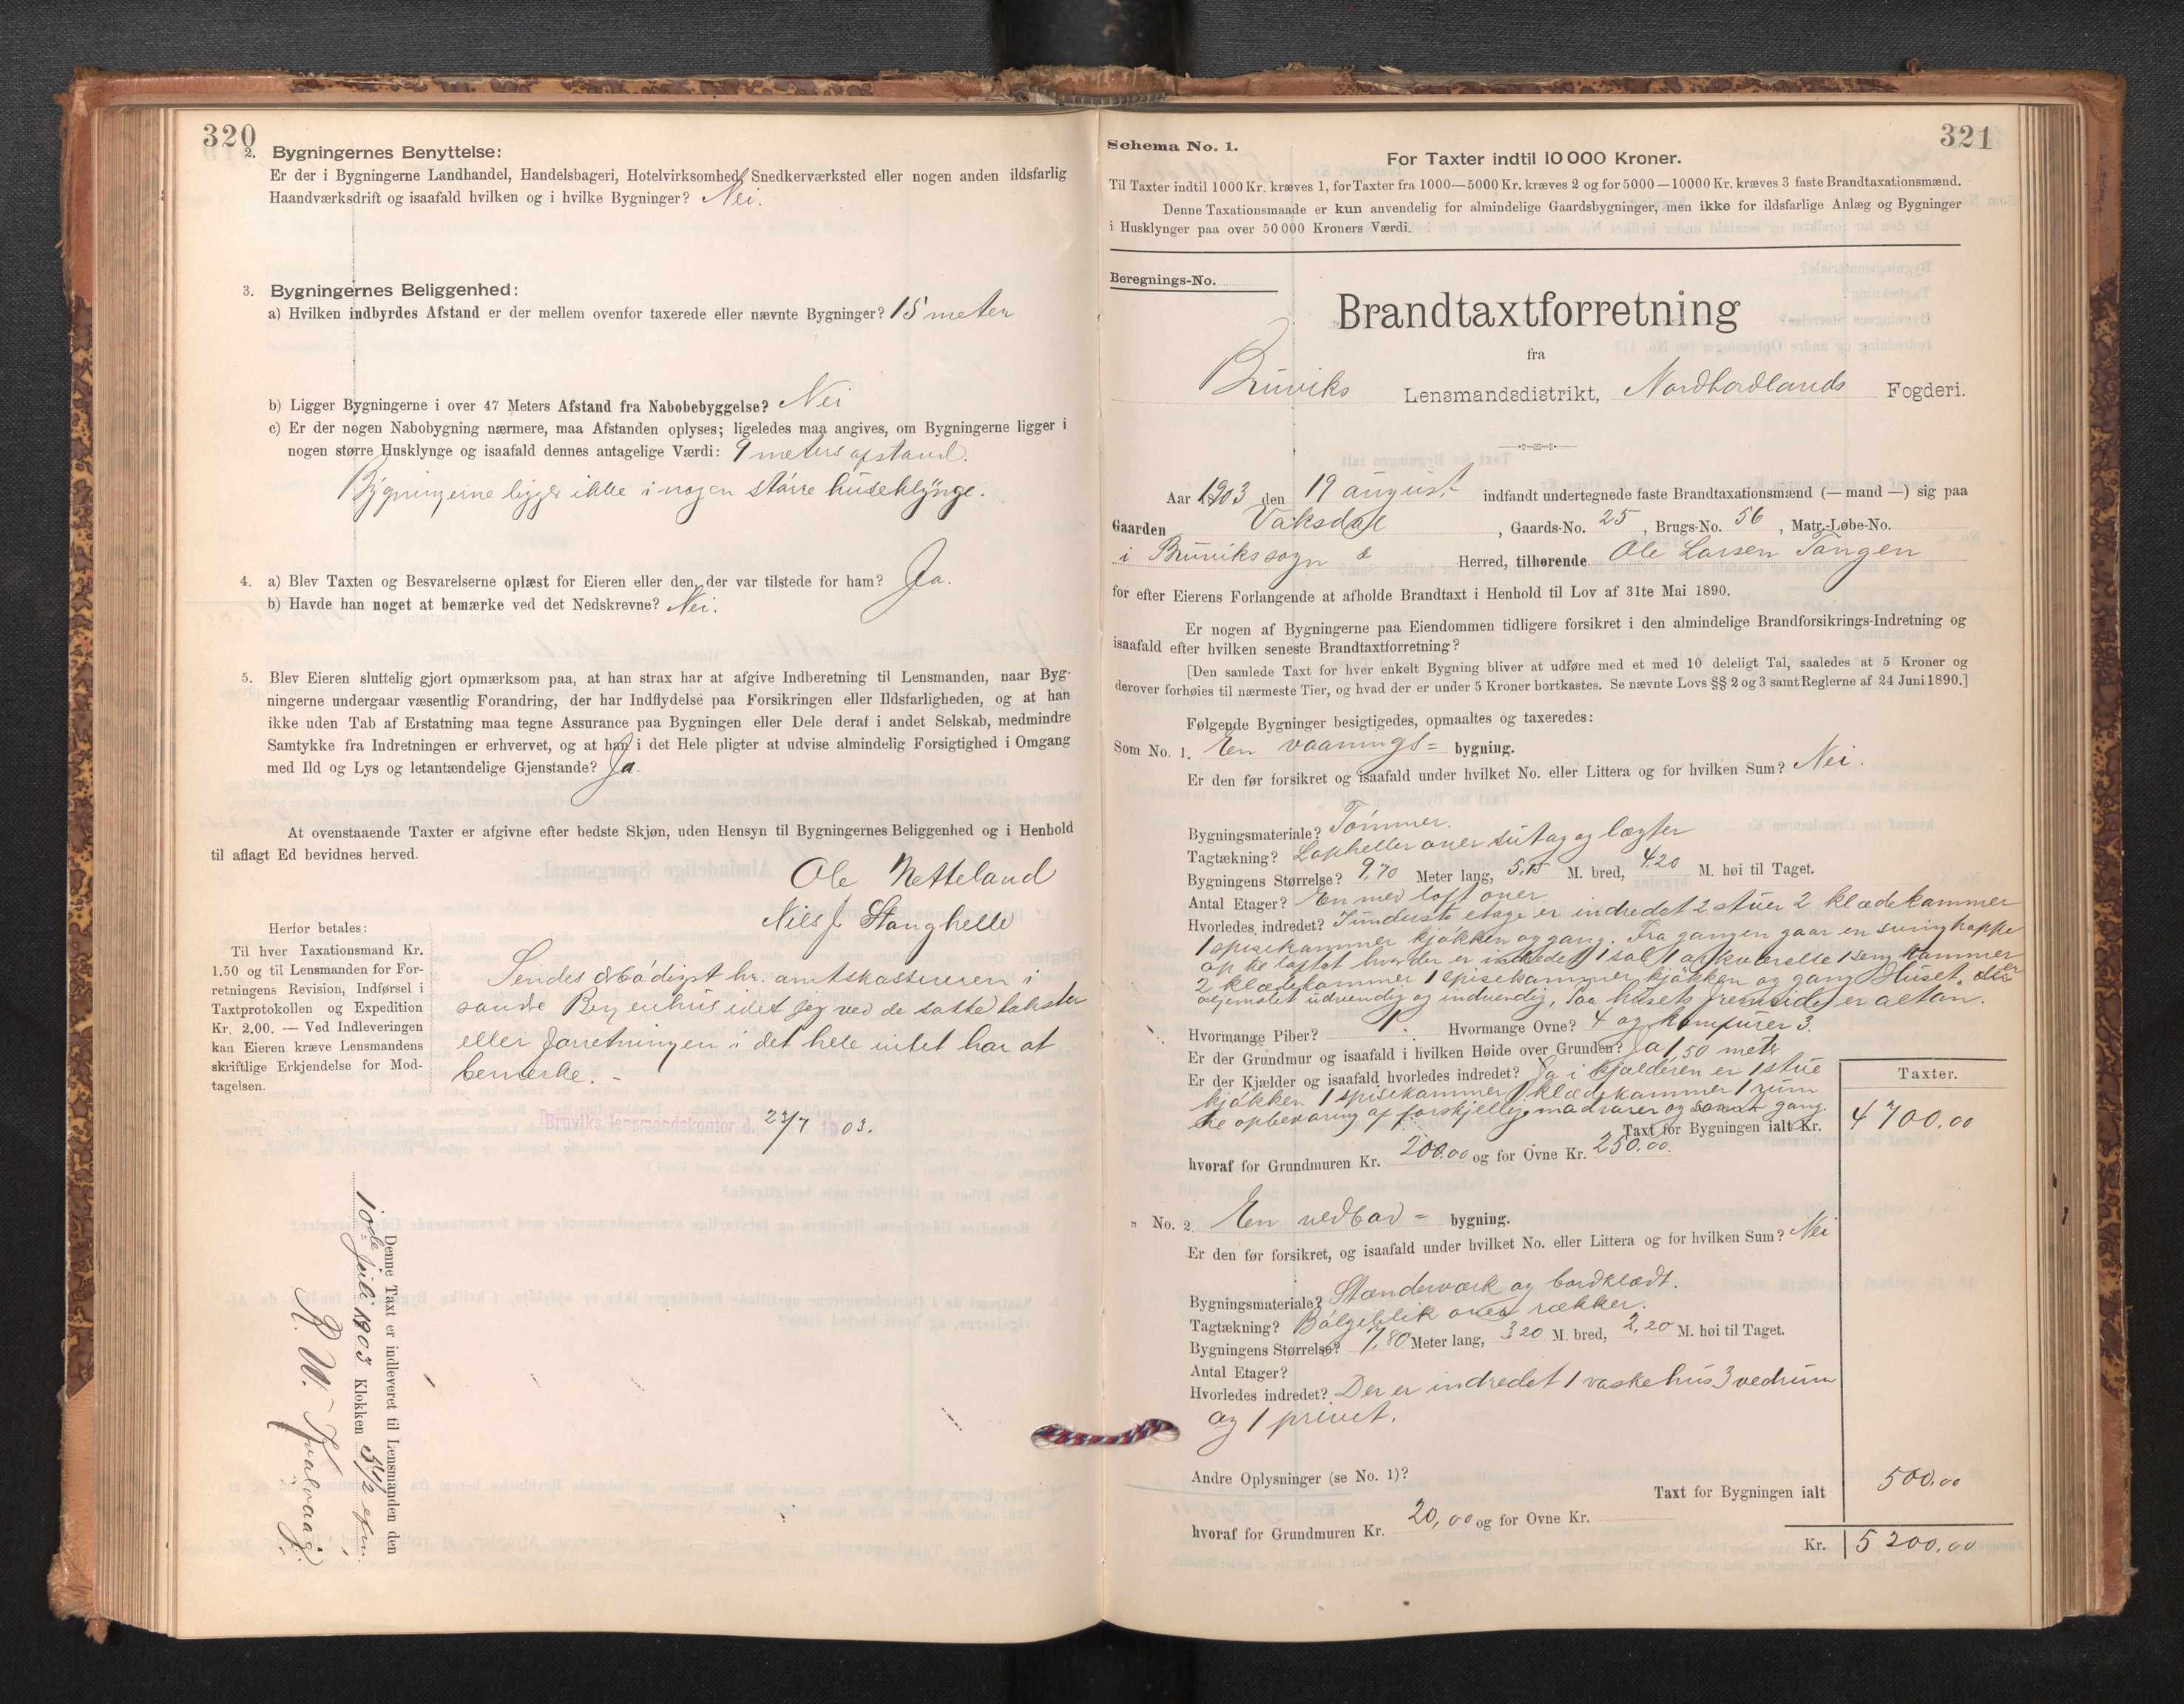 320
2. Bygningernes Benyttelse:
Er der i Bygningerne Landhandel, Handelsbageri, Hotelvirksomhed, Snedkerværksted eller nogen anden ildsfarlig
Haandværksdrift og isaafald hvilken og i hvilke Bygninger? Nei.
3. Bygningernes Beliggenhed:
a) Hvilken indbyrdes Afstand er der mellem ovenfor taxerede eller nævnte Bygninger? 15 meter
b) Ligger Bygningerne i over 47 Meters Afstand fra Nabobebyggelse? Nei
c) Er der nogen Nabobygning nærmere, maa Afstanden oplyses; ligeledes maa angives, om Bygningerne ligger i
nogen større Husklynge og isaafald dennes antagelige Værdi: 9 meters afstand.
Bygningerne ligger ikke i nogen större huseklynge.
4. a) Blev Taxten og Besvarelserne oplæst for Eieren eller den, der var tilstede for ham? Ja.
b) Havde han noget at bemærke ved det Nedskrevne? Nei.
5. Blev Eieren sluttelig gjort opmærksom paa, at han strax har at afgive Indberetning til Lensmanden, naar Byg-
ningerne undergaar væsentlig Forandring, der har Indflydelse paa Forsikringen eller Ildsfarligheden, og at han
ikke uden Tab af Erstatning maa tegne Assurance paa Bygningen eller Dele deraf i andet Selskab, medmindre
Samtykke fra Indretningen er erhvervet, og at han i det Hele pligter at udvise almindelig Forsigtighed i Omgang
med Ild og Lys og letantændelige Gjenstande? Ja.
At ovenstaaende Taxter er afgivne efter bedste Skjøn, uden Hensyn til Bygningernes Beliggenhed og i Henhold
til aflagt Ed bevidnes herved.
Ole Netteland
Nils J Stanghelle
Herfor betales:
Til hver Taxationsmand Kr.
1.50 og til Lensmanden for For-
retningens Revision, Indførsel i
Taxtprotokollen og Expedition
Kr. 2.00. — Ved Indleveringen
kan Eieren kræve Lensmandens
skriftlige Erkjendelse for Mod-
tagelsen.
Sendes hr. amtskassereren i
søndre Bergenhus idet jeg ved de satte takster
eller forretningen i det hele intet har at
bemerke. -
Bruviks lensmandskontor d. 22/7 1903.
Denne Taxt er indleveret til Lensmanden den
10de juli 1903 Klokken 5 1/2 efm.
R. W. Kvalvaag
321
Schema No. 1.
For Taxter indtil 10 000 Kroner.
Til Taxter indtil 1000 Kr. kræves 1, for Taxter fra 1000—5000 Kr. kræves 2 og for 5000—10000 Kr. kræves 3 faste Brandtaxationsmænd.
Denne Taxationsmaade er kun anvendelig for almindelige Gaardsbygninger, men ikke for ildsfarlige Anlæg og Bygninger
i Husklynger paa over 50 000 Kroners Værdi.
Beregnings-No.
Brandtaxtforretning
fra
Bruviks Lensmandsdistrikt, Nordhordlands Fogderi.
Aar 1903 den 19 august indfandt undertegnede faste Brandtaxationsmænd (— mand —) sig paa
Gaarden Vaksdal, Gaards-No. 25, Brugs-No. 56, Matr.-Løbe-No.
i Bruvikssogn Herred, tilhørende Ole Larsen Tangen
for efter Eierens Forlangende at afholde Brandtaxt i Henhold til Lov af 31te Mai 1890.
Er nogen af Bygningerne paa Eiendommen tidligere forsikret i den almindelige Brandforsikrings-Indretning og
isaafald efter hvilken seneste Brandtaxtforretning?
[Den samlede Taxt for hver enkelt Bygning bliver at udføre med et med 10 deleligt Tal, saaledes at 5 Kroner og
derover forhøies til nærmeste Tier, og hvad der er under 5 Kroner bortkastes. Se nævnte Lovs §§ 2 og 3 samt Reglerne af 24 Juni 1890.]
Følgende Bygninger besigtigedes, opmaaltes og taxeredes:
Som No. 1. En vaanings= bygning.
Er den før forsikret og isaafald under hvilket No. eller Littera og for hvilken Sum? Nei.
Bygningsmateriale? Tømmer.
Tagtækning? Lapheller over sutag og lægter
Bygningens Størrelse? 9,70 Meter lang, 5,15 M. bred, 4,20 M. høi til Taget.
Antal Etager? En med loft over
Hvorledes indredet? I underste etage er indredet 2 stuer 2 klædekammer
1 spisekammer kjøkken og gang. Fra gangen gaar en svingtrappe
op til loftet hvor der er indredet 1 sal 1 opkværelse 1 seng kammer
2 klædekammer 1 spisekammer kjøkken og gang Huset er
oljemalet udvendig og indvendig. Paa husets fremside er altan.
Hvormange Piber? 1. Hvormange Ovne? 4 og komfurer 3.
Er der Grundmur og isaafald i hvilken Høide over Grunden? Ja 1,50 meter
Er der Kjælder og isaafald hvorledes indredet? Ja i kjælderen er 1 stue
kjøkken 1 spisekammer 1 klædekammer 1 rum
til opbevaring af forskjellige madvarer og samt gang.
Taxter.
Taxt for Bygningen ialt Kr. 4700,00
hvoraf for Grundmuren Kr. 200.00 og for Ovne Kr. 250,00.
" No. 2. En vedbod= bygning.
Er den før forsikret, og isaafald under hvilket No. eller Littera og for hvilken Sum? Nei
Bygningsmateriale? Stænderværk og bordklædt.
Tagtækning? Bølgeblik over rækker.
Bygningens Størrelse? 7,80 Meter lang, 3,20 M. bred, 2,20 M. høi til Taget.
Antal Etager?
Hvorledes indredet? Der er indredet 1 vaskehus 3 vedrum
og 1 privet.
Andre Oplysninger (se No. 1)?
Taxt for Bygningen ialt 500,00
hvoraf for Grundmuren Kr. 20,00 og for Ovne Kr.
Kr. 5200,00